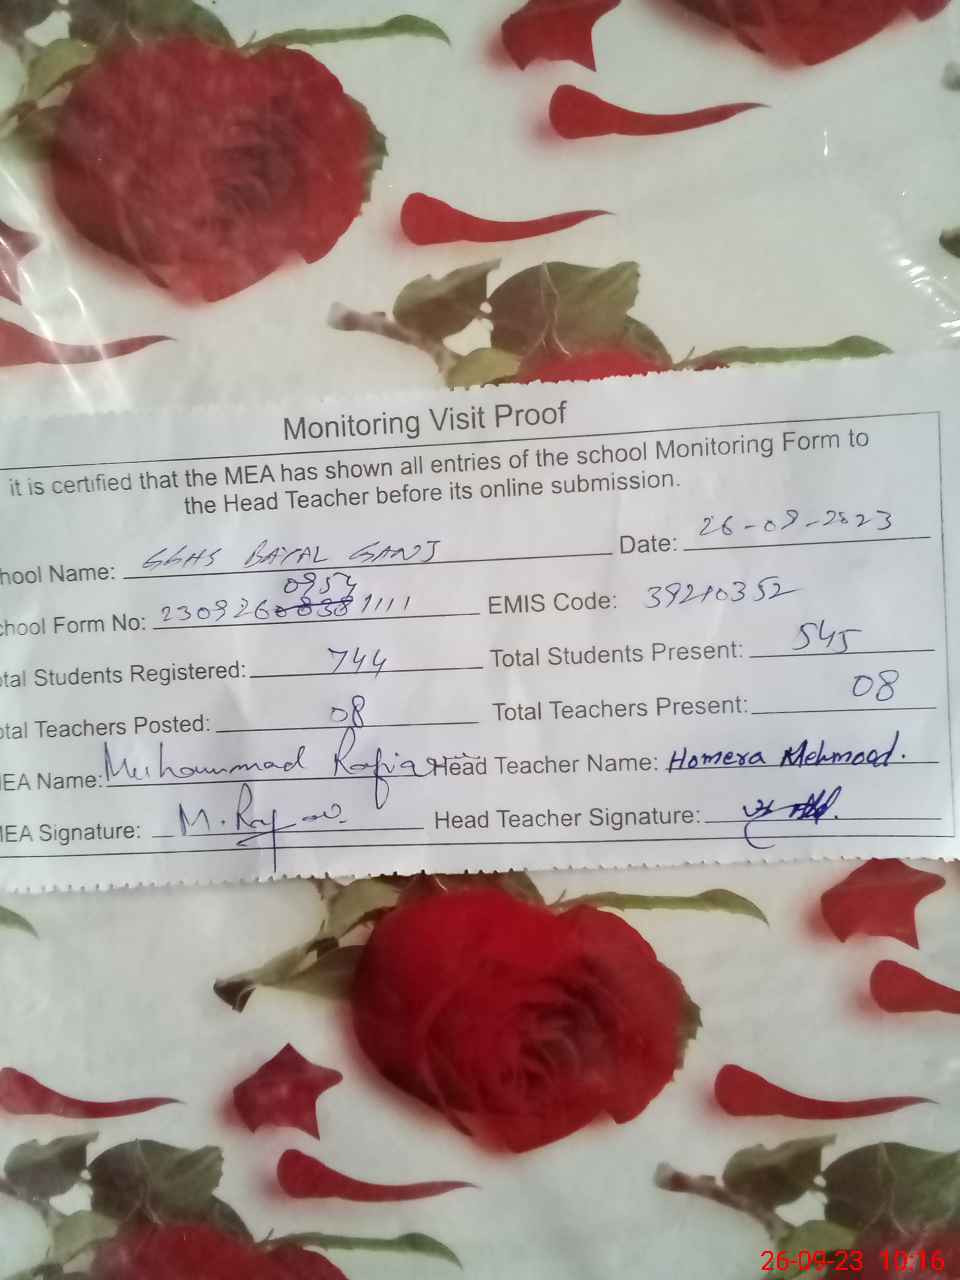 Monitoring Visit Proof
it is certified that the MEA has shown all entries of the school Monitoring Form to
the Head Teacher before its online submission.
hool Name: GGHS BAYAL GANJ Date: 26-09-2023
0954
chool Form No: 23092608381111 EMIS Code: 39210352
otal Students Registered: 744 Total Students Present: 545
otal Teachers Posted: 08 Total Teachers Present: 08
MEA Name: Muhammad Rafia Head Teacher Name: Homera Mehmood.
MEA Signature: M. Head Teacher Signature:
26-09-23 10:16